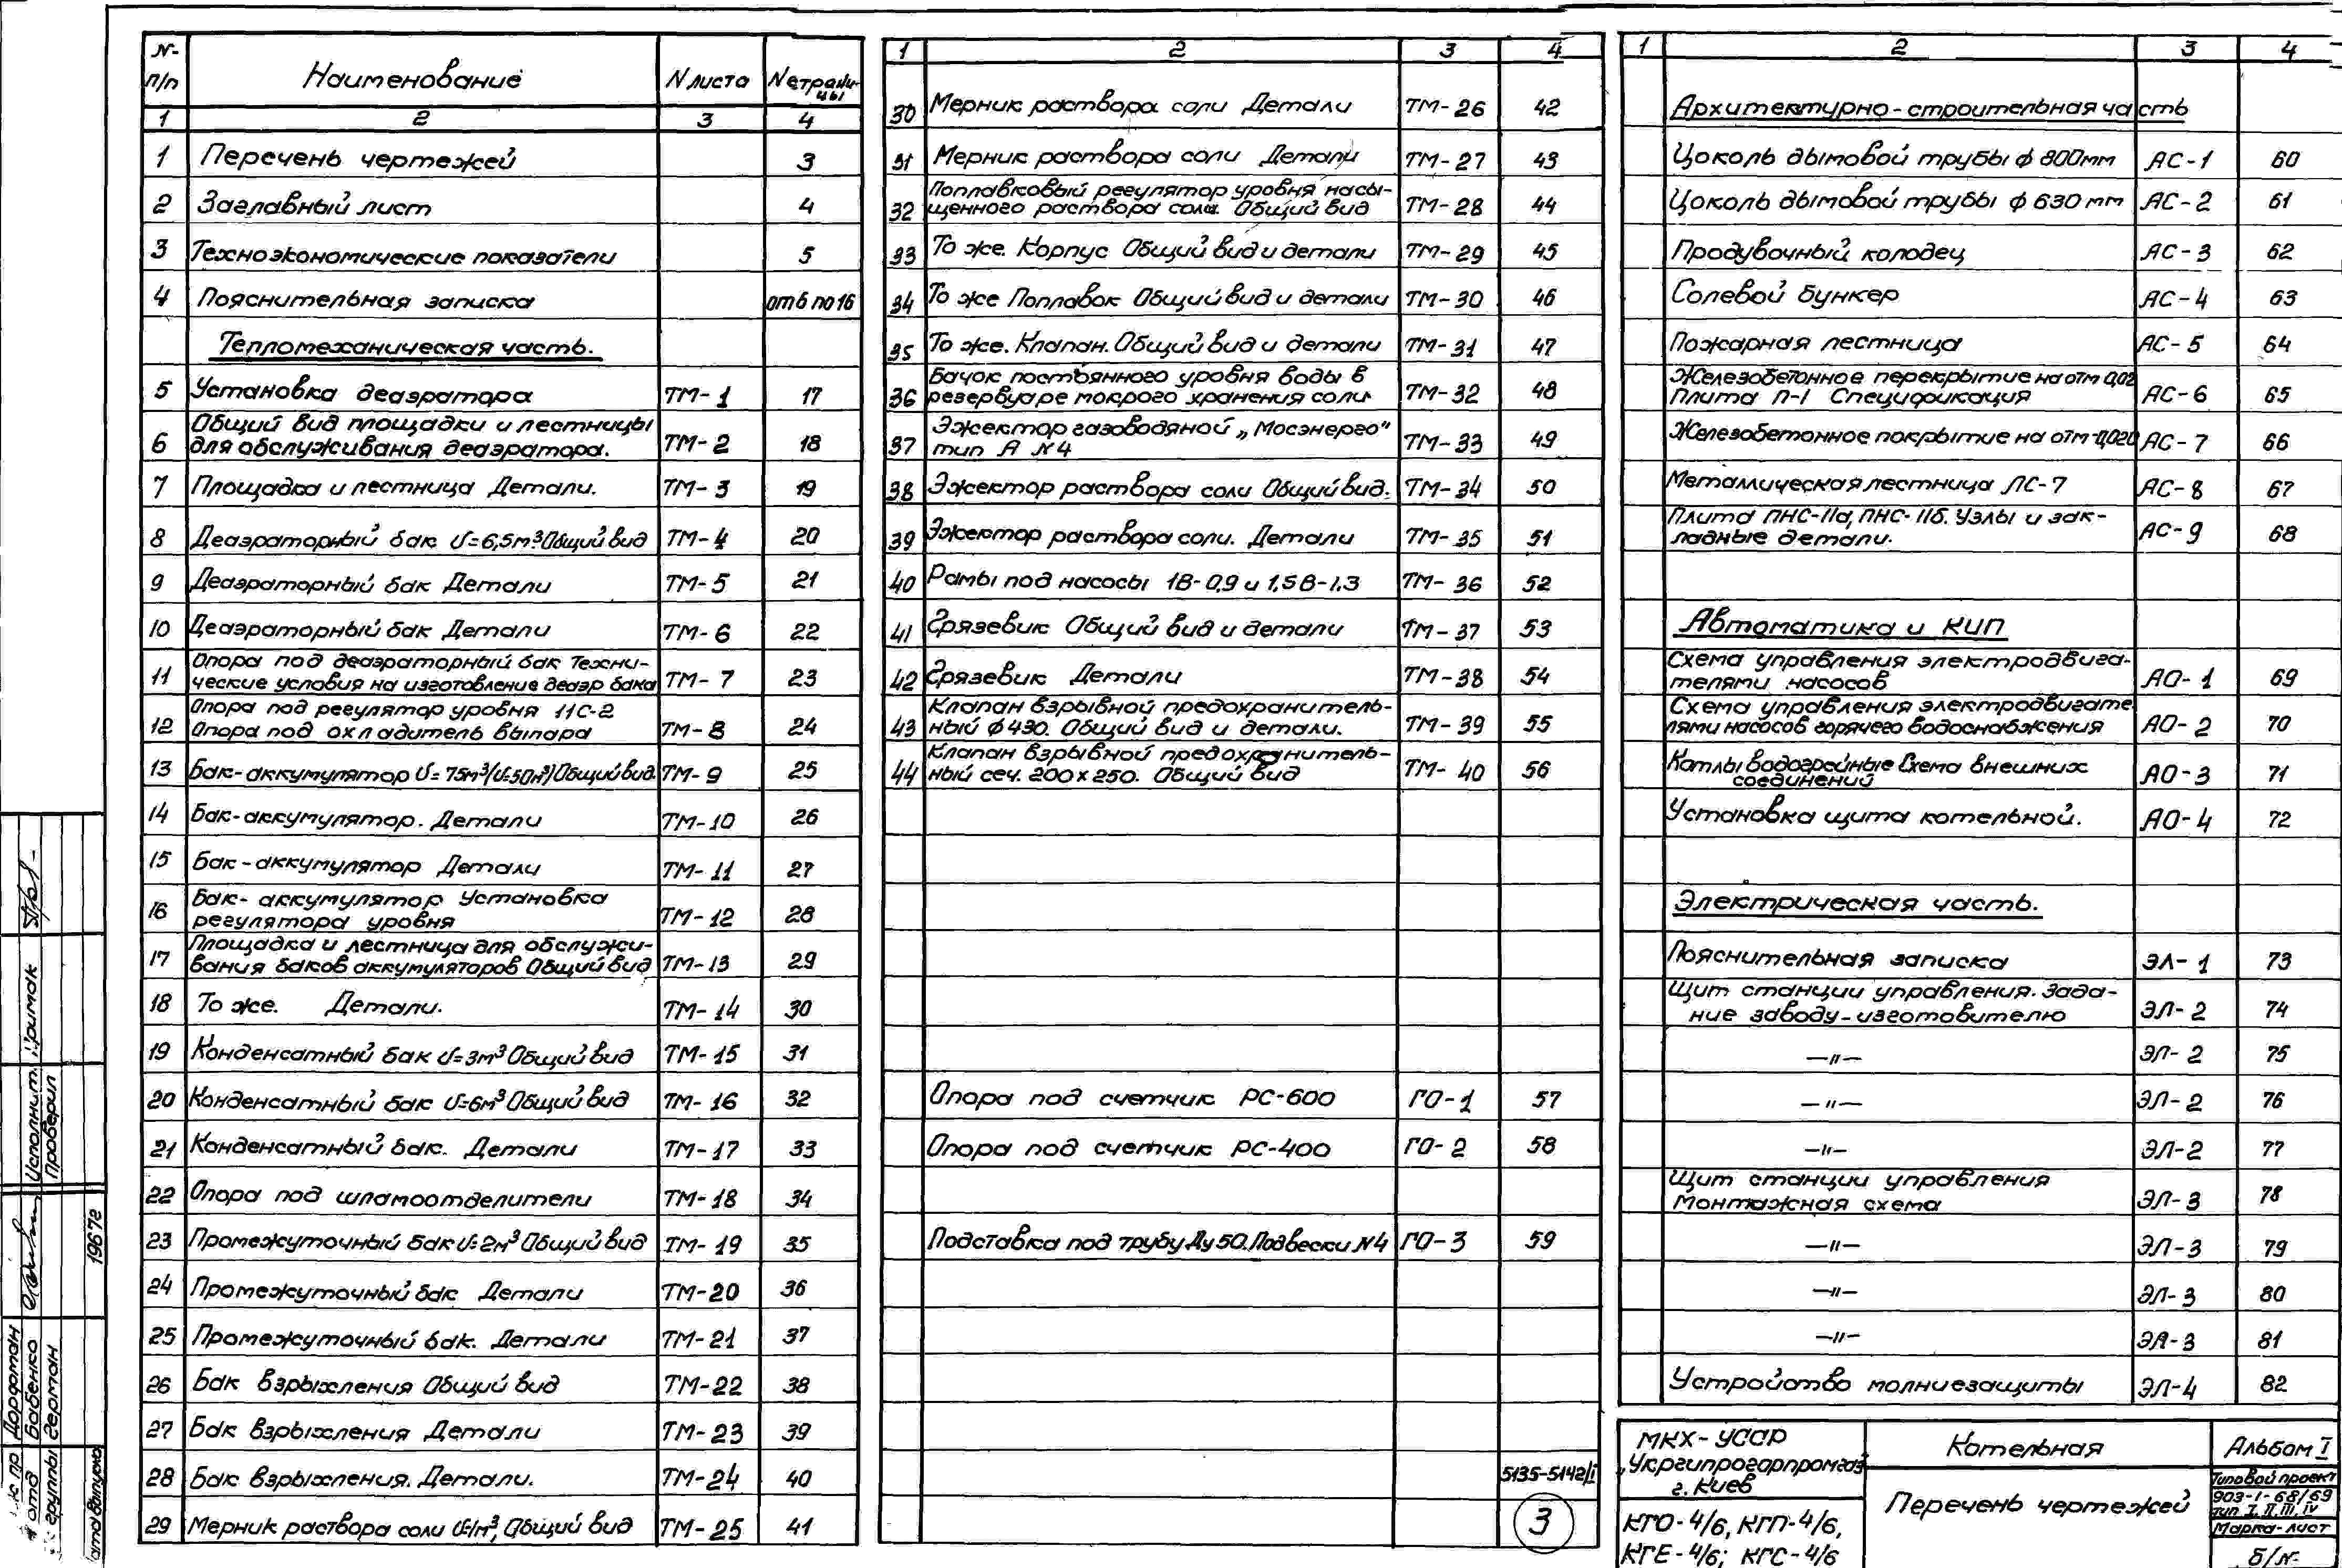 № п/п Наименование N листа N страницы
1 2 3 4
1 Перечень чертежей 3
2 Заглавный лист 4
3 Техноэкономические показатели 5
4 Пояснительная записка от 6 по 16
Тепломеханическая часть.
5 Установка деаэратора ТМ-1 17
Общий вид площадки и лестницы
6 для обслуживания деаэратора. ТМ-2 18
7 Площадка и лестница Детали. ТМ-3 19
8 Деаэраторный бак V=6,5м³ Общий вид ТМ-4 20
9 Деаэраторный бак Детали ТМ-5 21
10 Деаэраторный бак Детали ТМ-6 22
Опора под деаэраторный бак Техни-
11 ческие условия на изготовление деаэр бака ТМ-7 23
Опора под регулятор уровня 11С-2
12 Опора под охладитель выпара ТМ-8 24
13 Бак-аккумулятор V=75м³(V=50м³) Общий вид. ТМ-9 25
14 Бак-аккумулятор. Детали ТМ-10 26
15 Бак-аккумулятор Детали ТМ-11 27
Бак-аккумулятор Установка
16 регулятора уровня ТМ-12 28
Площадка и лестница для обслужи-
17 вания баков аккумуляторов Общий вид ТМ-13 29
18 То же. Детали. ТМ-14 30
19 Конденсатный бак V=3м³ Общий вид ТМ-15 31
20 Конденсатный бак V=6м³ Общий вид ТМ-16 32
21 Конденсатный бак. Детали ТМ-17 33
22 Опора под шламоотделители ТМ-18 34
23 Промежуточный бак V=2м³ Общий вид ТМ-19 35
24 Промежуточный бак Детали ТМ-20 36
25 Промежуточный бак. Детали ТМ-21 37
26 Бак взрыхления Общий вид ТМ-22 38
27 Бак взрыхления Детали ТМ-23 39
28 Бак взрыхления. Детали. ТМ-24 40
29 Мерник раствора соли V=1м³, Общий вид ТМ-25 41
1 2 3 4
30 Мерник раствора соли Детали ТМ-26 42
31 Мерник раствора соли Детали ТМ-27 43
Поплавковый регулятор уровня насы-
32 щенного раствора соли. Общий вид ТМ-28 44
33 То же. Корпус Общий вид и детали ТМ-29 45
34 То же Поплавок Общий вид и детали ТМ-30 46
35 То же. Клапан. Общий вид и детали ТМ-31 47
Бачок постоянного уровня воды в
36 резервуаре мокрого хранения соли ТМ-32 48
Эжектор газоводяной „Мосэнерго"
37 тип А N4 ТМ-33 49
38 Эжектор раствора соли Общий вид. ТМ-34 50
39 Эжектор раствора соли. Детали ТМ-35 51
40 Рамы под насосы 1В-0,9 и 1,5В-1,3 ТМ-36 52
41 Грязевик Общий вид и детали ТМ-37 53
42 Грязевик Детали ТМ-38 54
Клапан взрывной предохранитель-
43 ный ф 430. Общий вид и детали. ТМ-39 55
Клапан взрывной предохранитель-
44 ный сеч. 200х250. Общий вид ТМ-40 56
Опора под счетчик РС-600 ГО-1 57
Опора под счетчик РС-400 ГО-2 58
Подставка под трубу Ду 50. Подвески N4 ГО-3 59
5135-5142/I
3
1 2 3 4
Архитектурно-строительная часть
Цоколь дымовой трубы ф 800мм АС-1 60
Цоколь дымовой трубы ф 630мм АС-2 61
Продувочный колодец АС-3 62
Солевой бункер АС-4 63
Пожарная лестница АС-5 64
Железобетонное перекрытие на отм 0,02
Плита П-1 Спецификация АС-6 65
Железобетонное покрытие на отм-0,020 АС-7 66
Металлическая лестница ЛС-7 АС-8 67
Плита ПНС-11а, ПНС-11б. Узлы и зак-
ладные детали. АС-9 68
Автоматика и КИП
Схема управления электродвига-
телями насосов АО-1 69
Схема управления электродвигате
лями насосов горячего водоснабжения АО-2 70
Котлы водогрейные Схема внешних
соединений АО-3 71
Установка щита котельной. АО-4 72
Электрическая часть.
Пояснительная записка ЭЛ-1 73
Щит станции управления. Зада-
ние заводу-изготовителю ЭЛ-2 74
—"— ЭЛ-2 75
—"— ЭЛ-2 76
—"— ЭЛ-2 77
Щит станции управления
Монтажная схема ЭЛ-3 78
—"— ЭЛ-3 79
—"— ЭЛ-3 80
—"— ЭЛ-3 81
Устройство молниезащиты ЭЛ-4 82
МКХ-УССР
„Укргипрогорпромгаз
г. Киев
КГО-4/6, КГП-4/6,
КГЕ-4/6; КГС-4/6
Котельная
Перечень чертежей
Альбом I
Типовой проект
903-1-68/69
тип I, II, III, IV
Марка-лист
б/н.
Исполнит. Примак
Проверил
1967г
пр Дорфман
отд Бабенко
группы Герман
ата выпуска